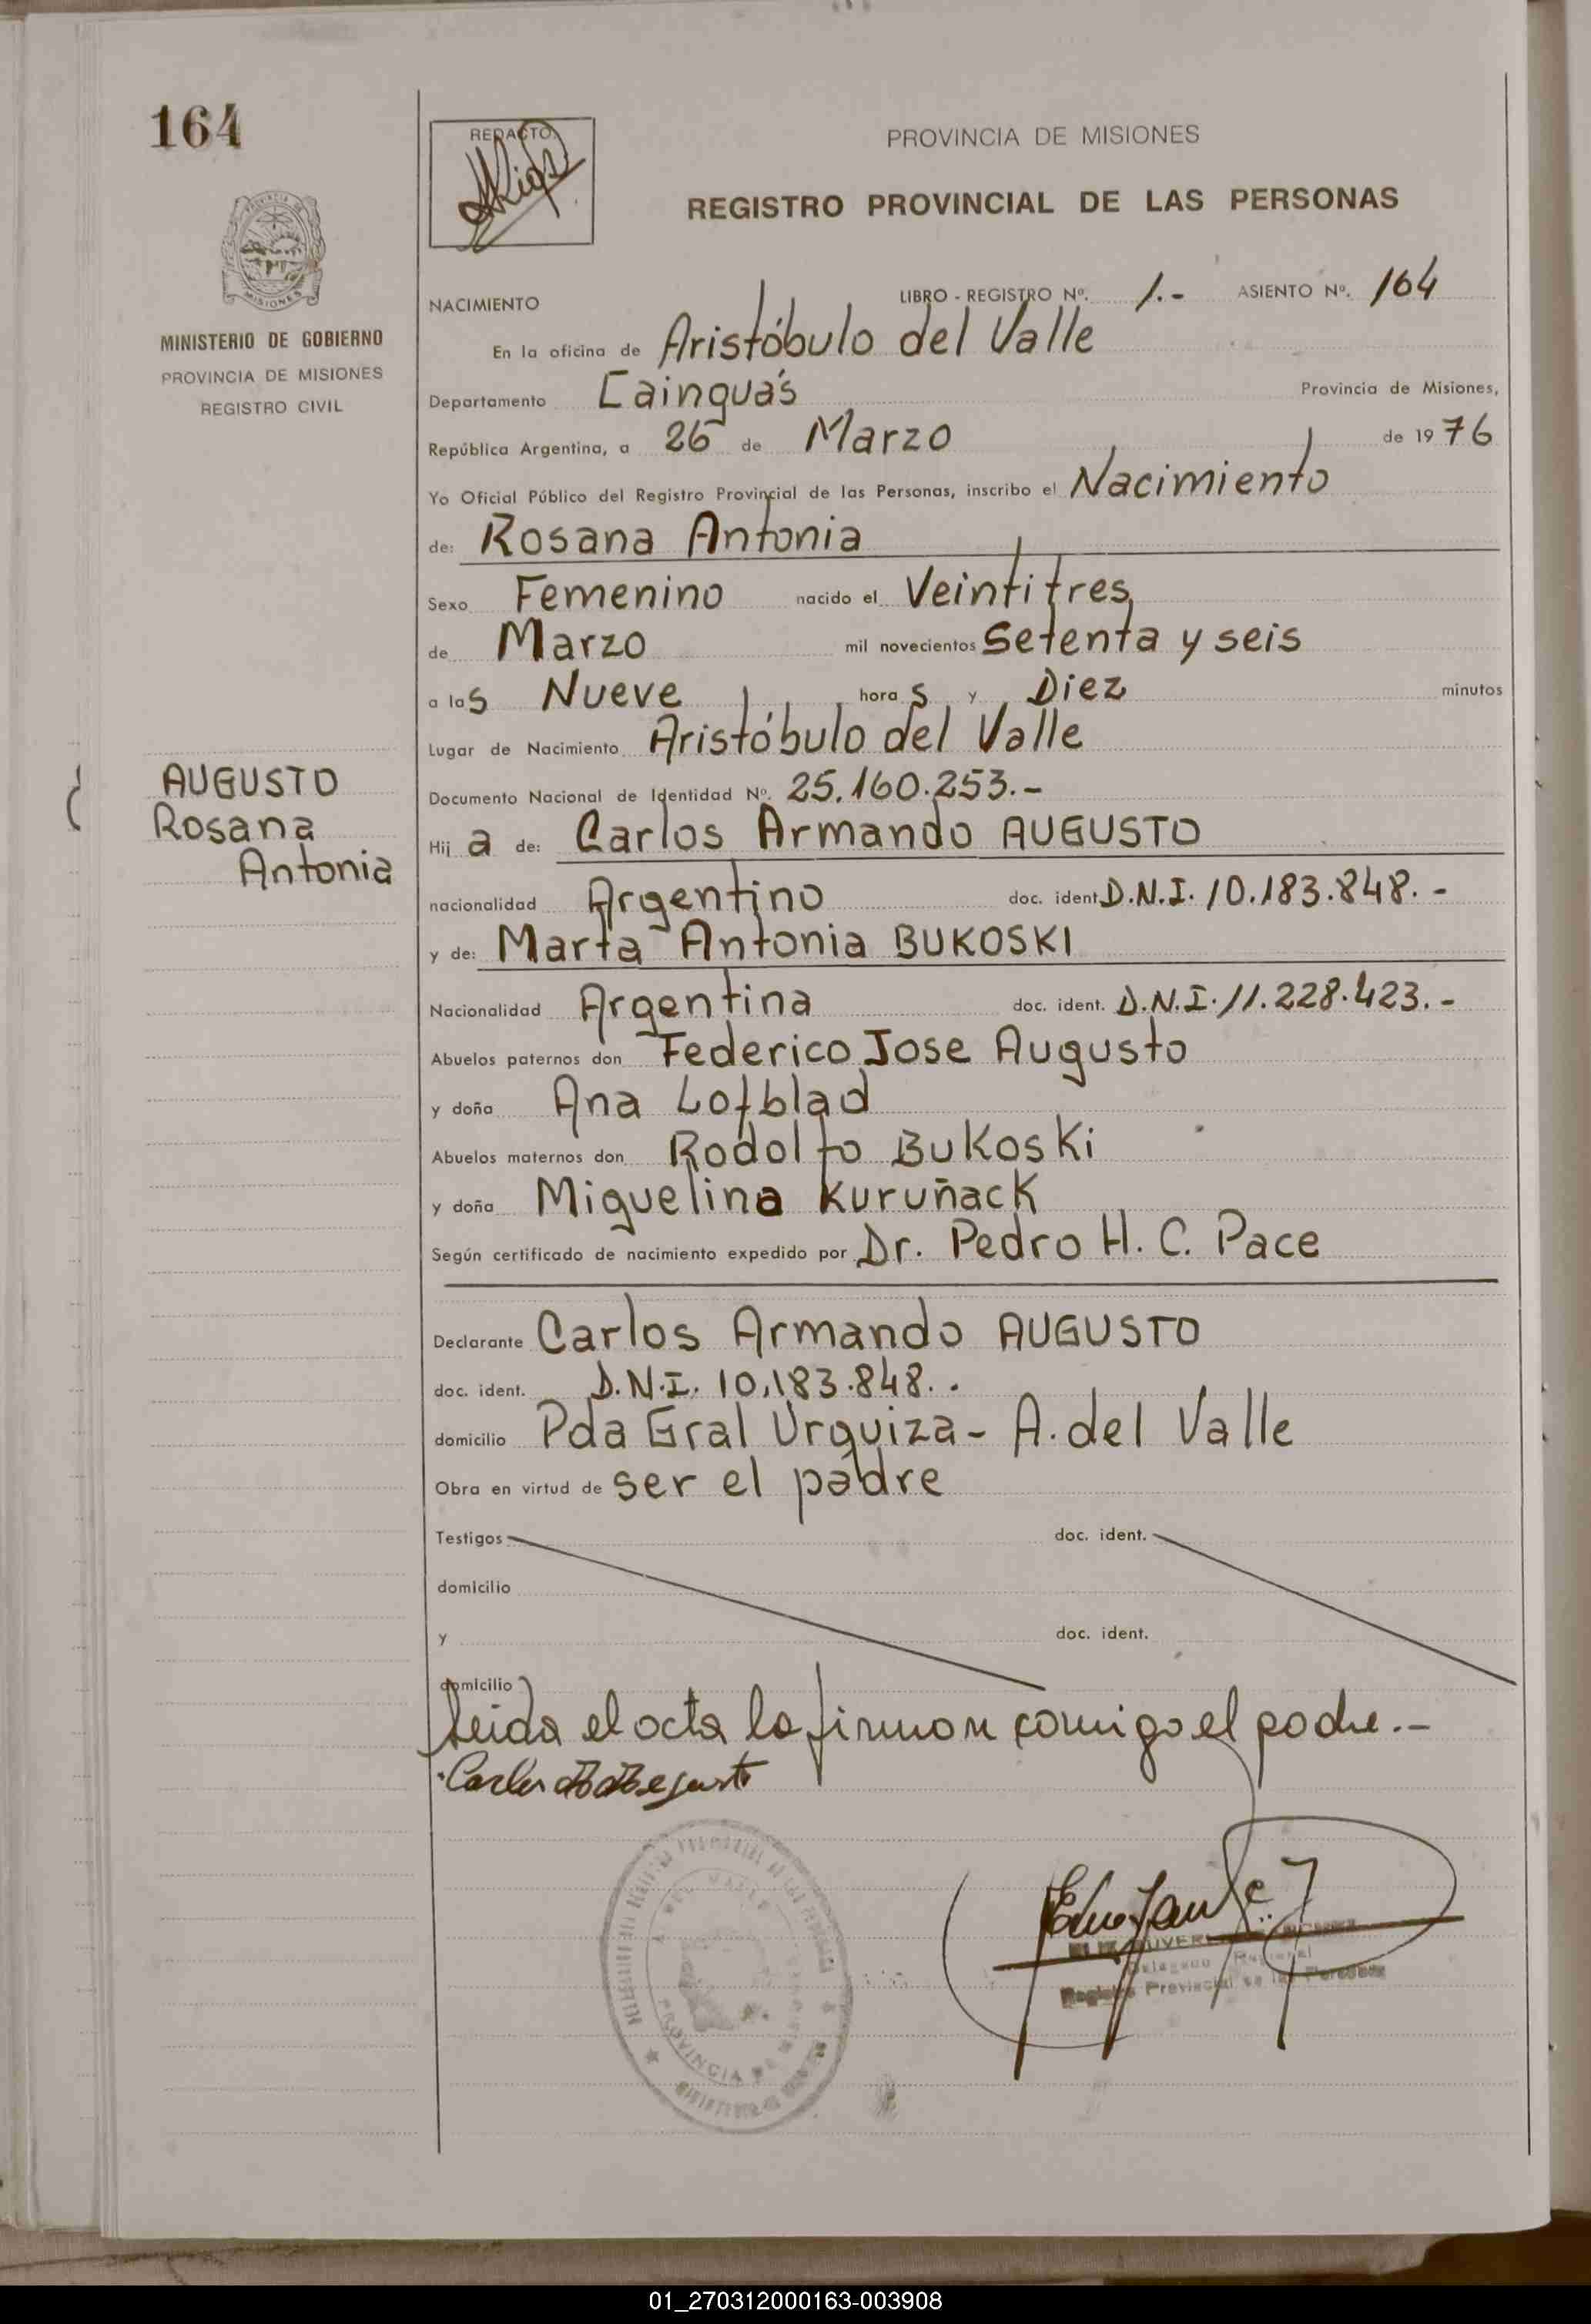 164
REDACTO:
PROVINCIA DE MISIONES
REGISTRO PROVINCIAL DE LAS PERSONAS
MISIONES
MINISTERIO DE GOBIERNO
PROVINCIA DE MISIONES
REGISTRO CIVIL
NACIMIENTO LIBRO - REGISTRO Nº. 1.- ASIENTO Nº. 164
En la oficina de Aristóbulo del Valle
Departamento Cainguás Provincia de Misiones,
República Argentina, a 26 de Marzo de 1976
Yo Oficial Público del Registro Provincial de las Personas, inscribo el Nacimiento
de: Rosana Antonia
Sexo Femenino nacido el Veintitres
de Marzo mil novecientos Setenta y seis
a las Nueve horas y Diez minutos
Lugar de Nacimiento Aristóbulo del Valle
Documento Nacional de Identidad Nº. 25.160.253.-
AUGUSTO
Rosana
Antonia
Hija de: Carlos Armando AUGUSTO
nacionalidad Argentino doc. ident D.N.I. 10.183.848.-
y de: Marta Antonia BUKOSKI
Nacionalidad Argentina doc. ident. D.N.I. 11.228.423.-
Abuelos paternos don Federico Jose Augusto
y doña Ana Lofblad
Abuelos maternos don Rodolfo Bukoski
y doña Miguelina Kuruñack
Según certificado de nacimiento expedido por Dr. Pedro H. C. Pace
Declarante Carlos Armando AUGUSTO
doc. ident. D.N.I. 10.183.848..
domicilio Pda Gral Urquiza - A. del Valle
Obra en virtud de ser el padre
Testigos doc. ident.
domicilio
y doc. ident.
domicilio
Leida el acta la firman conmigo el padre.-
Carlos
Delegado Regional
Registro Provincial de las Personas
PROVINCIA DE
01_270312000163-003908